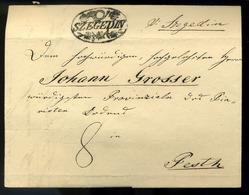 SZEGEDIN
v. Szegedin
Dem hochwürdigen, hochgelehrten Herrn
Johann Grosser
würdigsten Provinziale des Pia-
risten Ordens
8
in
Pesth